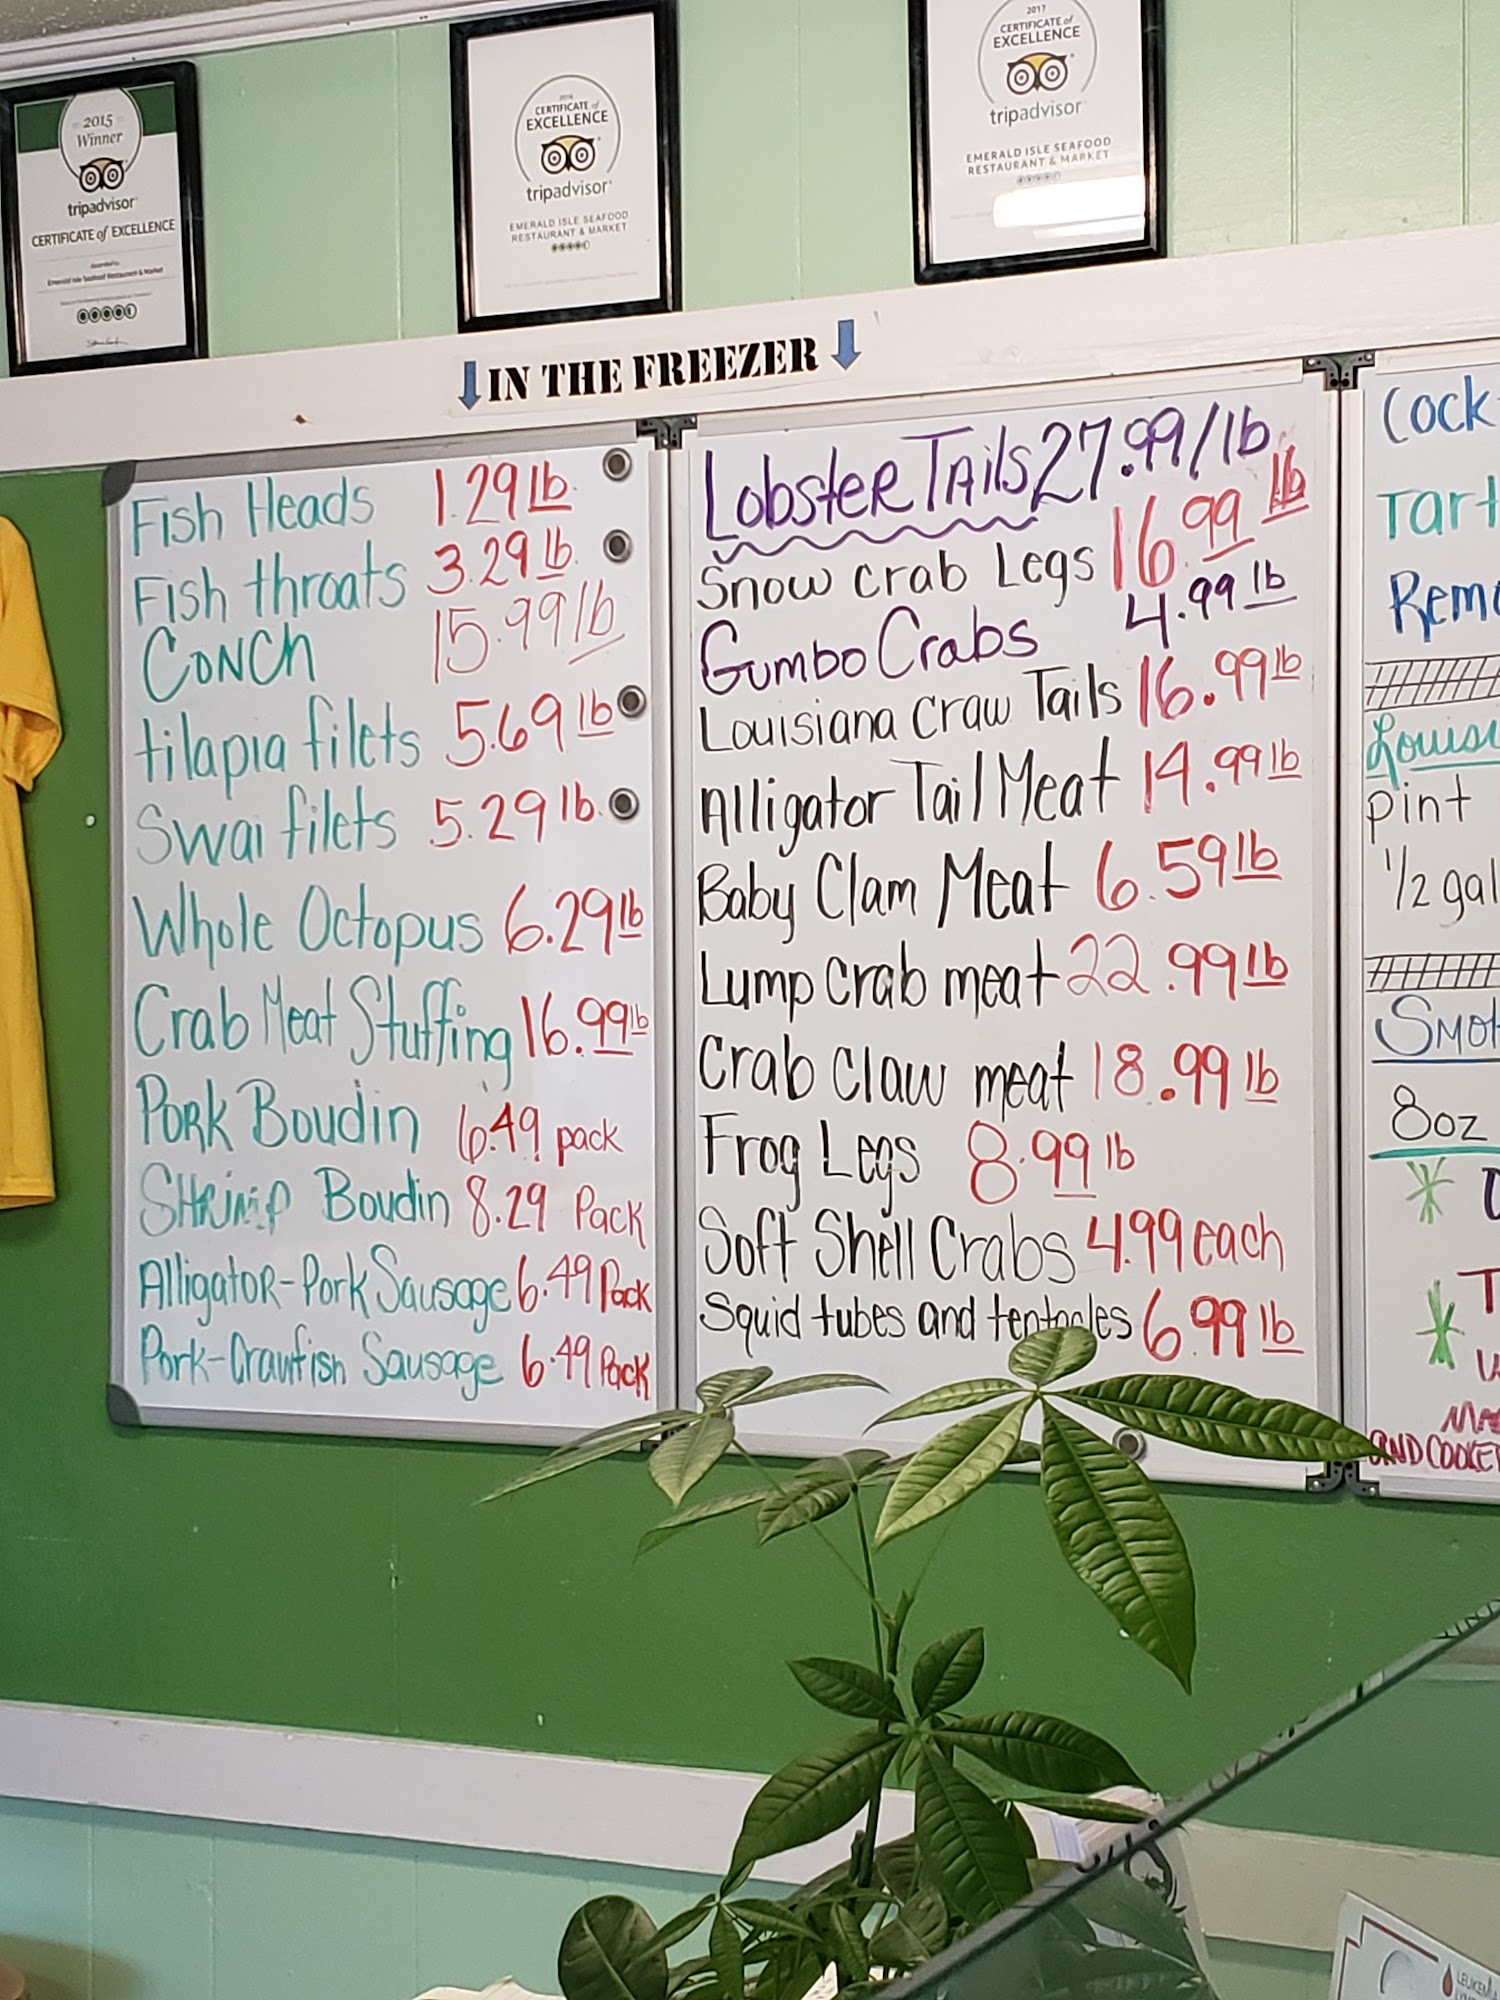 2015
Winner
tripadvisor
CERTIFICATE of EXCELLENCE
Awarded to
Emerald Isle Seafood Restaurant & Market
2016
CERTIFICATE of
EXCELLENCE
tripadvisor
EMERALD ISLE SEAFOOD
RESTAURANT & MARKET
2017
CERTIFICATE of
EXCELLENCE
tripadvisor
EMERALD ISLE SEAFOOD
RESTAURANT & MARKET
IN THE FREEZER
Fish Heads 1.29 lb.
Fish throats 3.29 lb.
Conch 15.99 lb
tilapia filets 5.69 lb
Swai filets 5.29 lb.
Whole Octopus 6.29 lb
Crab Meat Stuffing 16.99 lb
Pork Boudin 6.49 pack
Shrimp Boudin 8.29 Pack
Alligator-Pork Sausage 6.49 Pack
Pork-Crawfish Sausage 6.49 Pack
Lobster Tails 27.99/lb.
Snow Crab Legs 16.99 lb
Gumbo Crabs 4.99 lb
Louisiana Craw Tails 16.99 lb
Alligator Tail Meat 14.99 lb
Baby Clam Meat 6.59 lb
Lump Crab meat 22.99 lb
Crab Claw meat 18.99 lb
Frog Legs 8.99 lb
Soft Shell Crabs 4.99 each
Squid tubes and tentacles 6.99 lb
Cock
Tart
Remo
Louisi
pint
1/2 gal
Smok
8oz
AND COOKE
LEUKEMIA